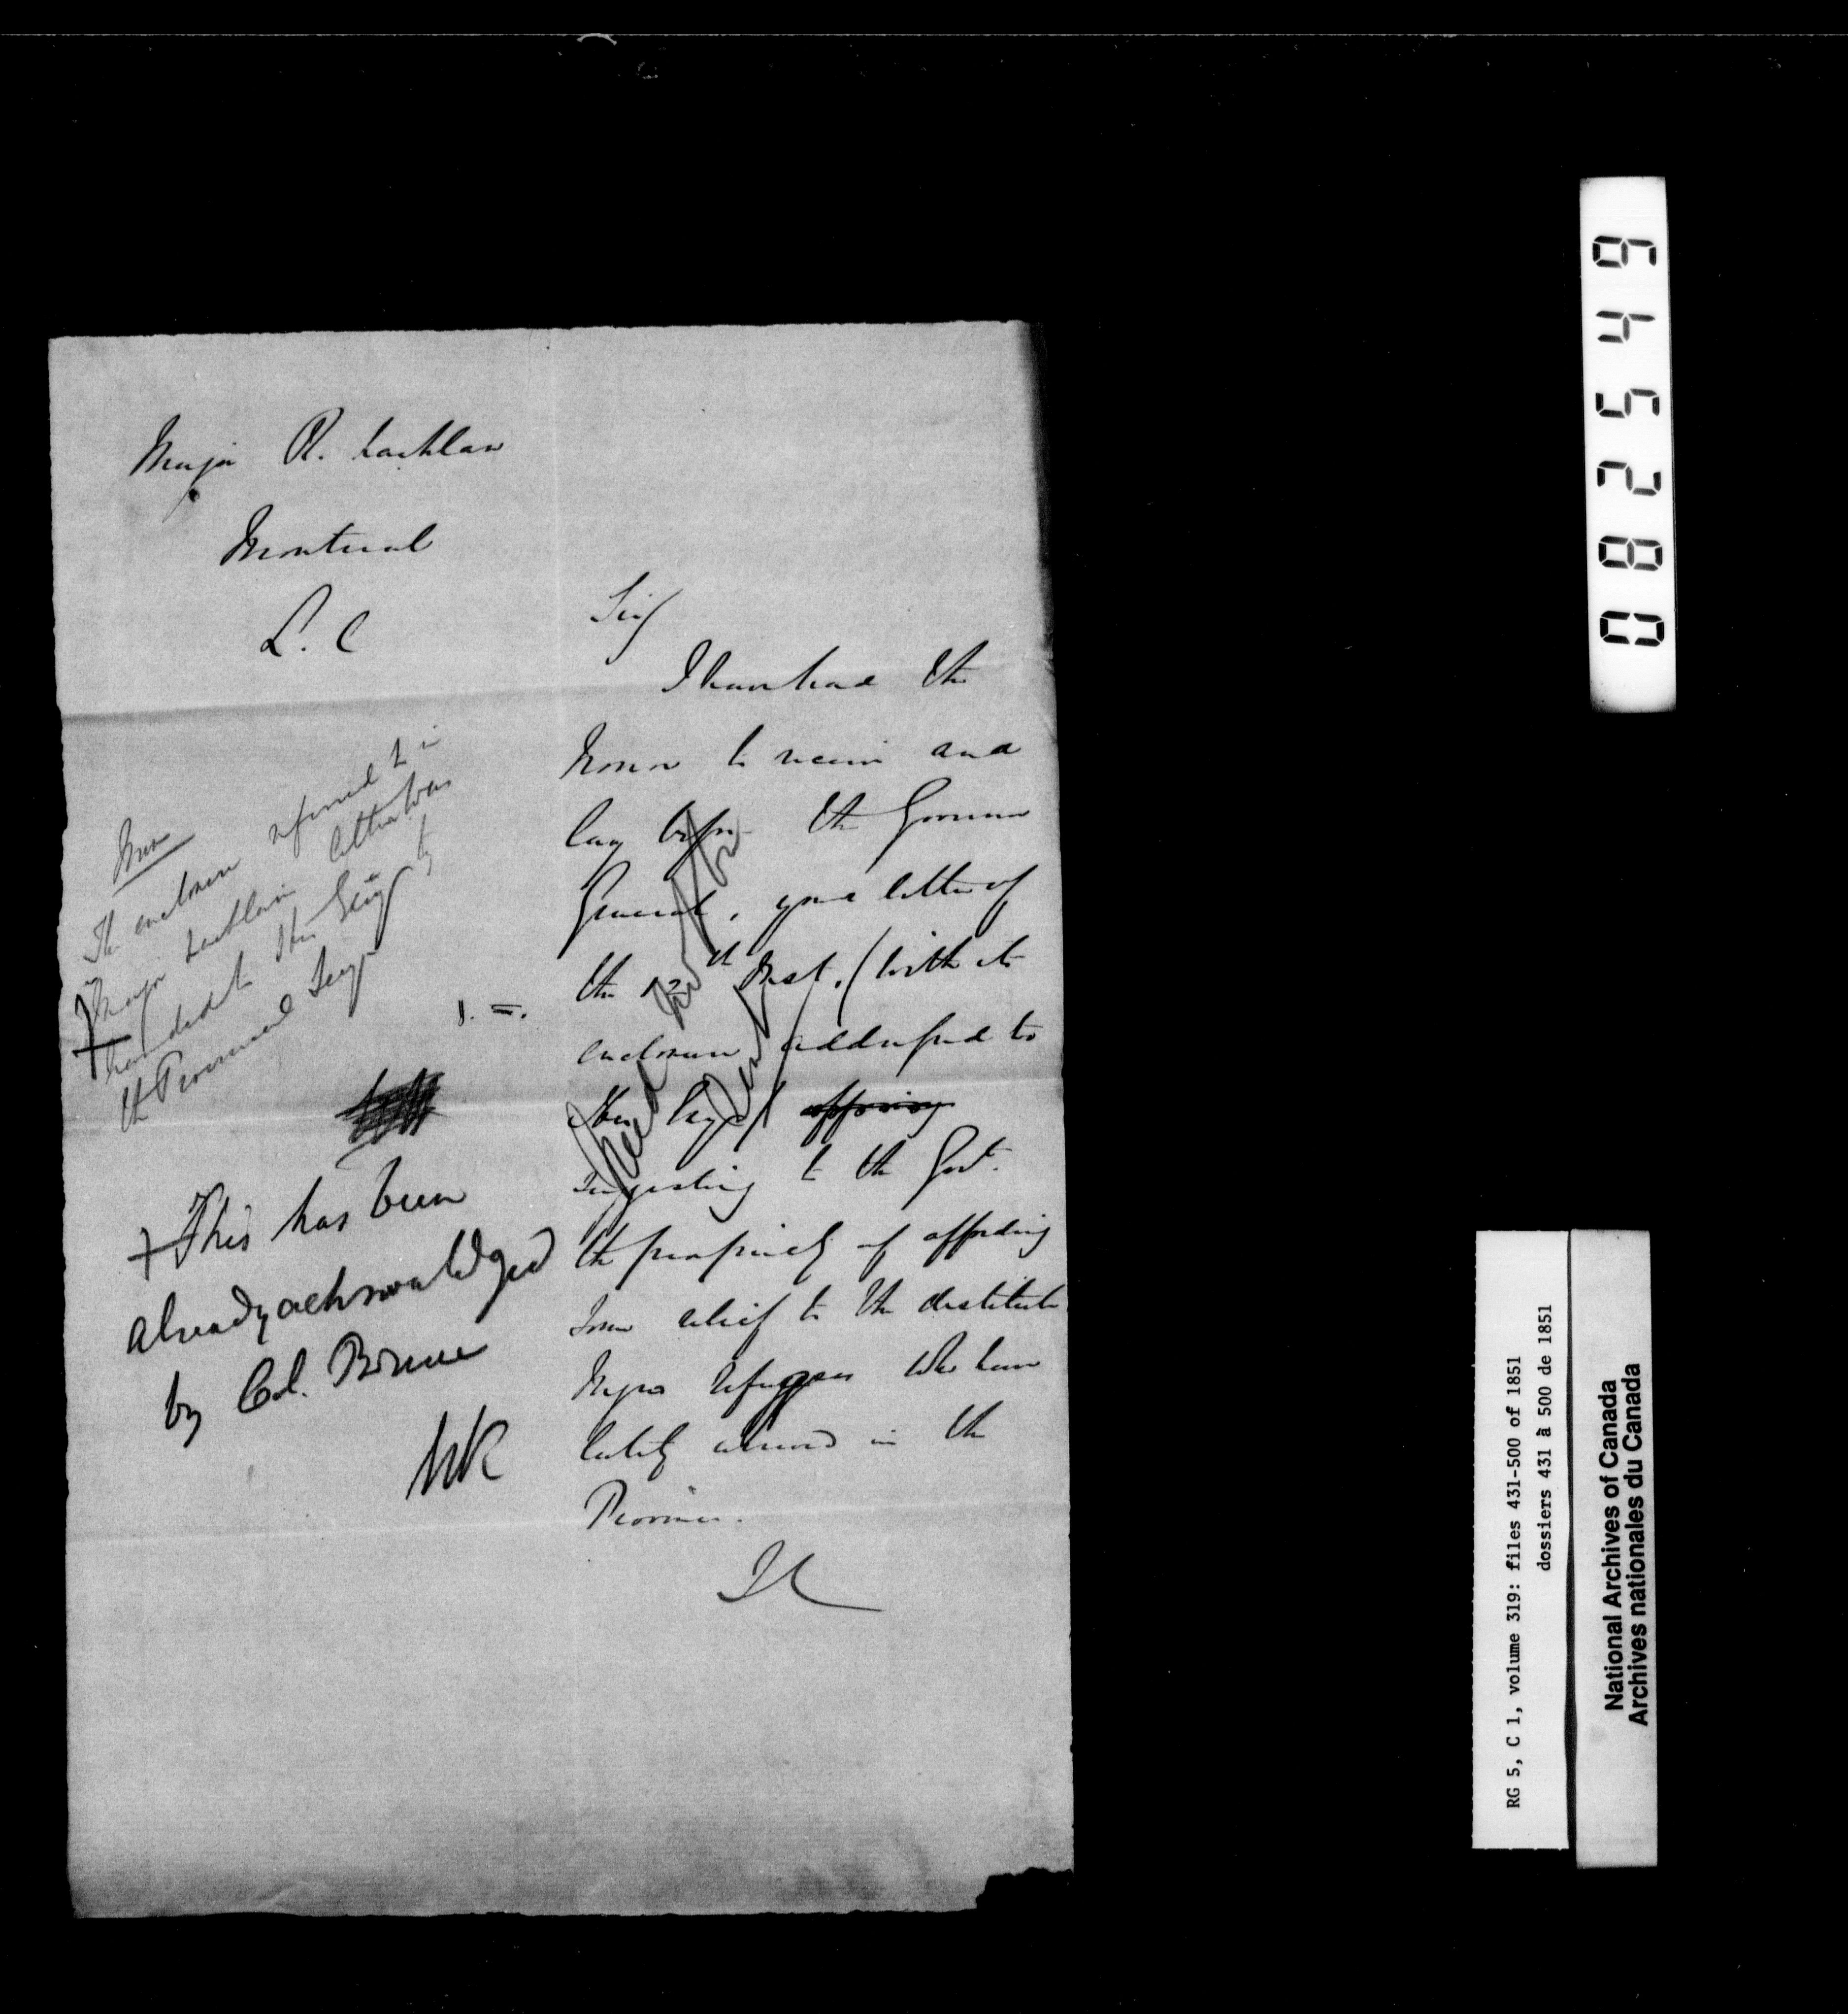 Major R. Lachlan
Montreal
L. C
Sir
I have had the
honor to receive and
lay before the Governor
General, your letter of
the 12th Inst. (with its
enclosure addressed to
Her Majy)
suggesting to the Govt.
the propriety of affording
some relief to the destitute
Negro refugees who have
lately arrived in the
Province.
I &c
Mem
The enclosure referred to in
Major Lachlan's letter was
handed to His Excy by
the Provincial Secy
+ This has been
already acknowledged
by Col. Bruce
Need not be
sent
0 8 2 5 4 6
RG 5, C 1, volume 319: files 431-500 of 1851
dossiers 431 à 500 de 1851
National Archives of Canada
Archives nationales du Canada